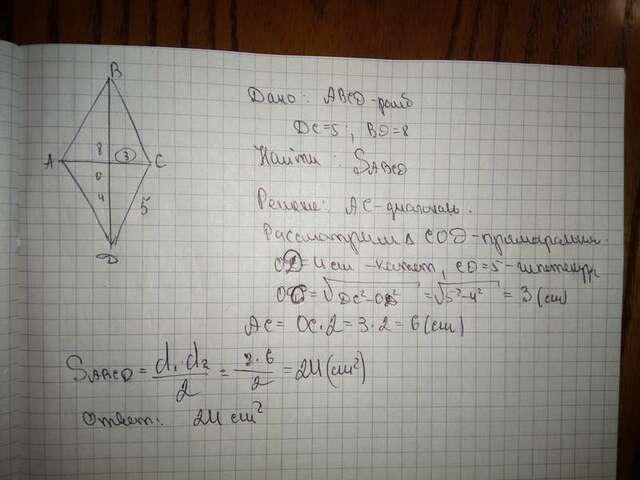 B
A 8 3 C
O
4 5
D
Дано: ABCD-ромб
DC=5, BD=8
Найти: SABCD
Решение: AC-диагональ.
Рассмотрим Δ COD-прямоугольн.
OD=4см -катет, CD=5-гипотенуза
OC=√DC²-OD²=√5²-4² = 3 (см)
AC= OC·2=3·2=6(см)
SABCD = d₁·d₂/2 = 8·6/2 = 24(см²)
Ответ: 24 см²